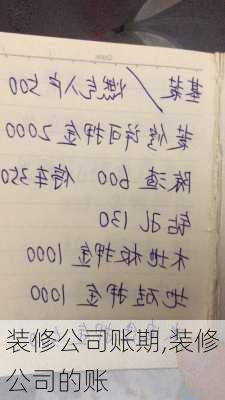 基装 / 燃气入户 500
装修许可押金 2000
除渣 600 停车350
钻孔 130
木地板押金 1000
地砖押金 1000
装修公司账期,装修
公司的账